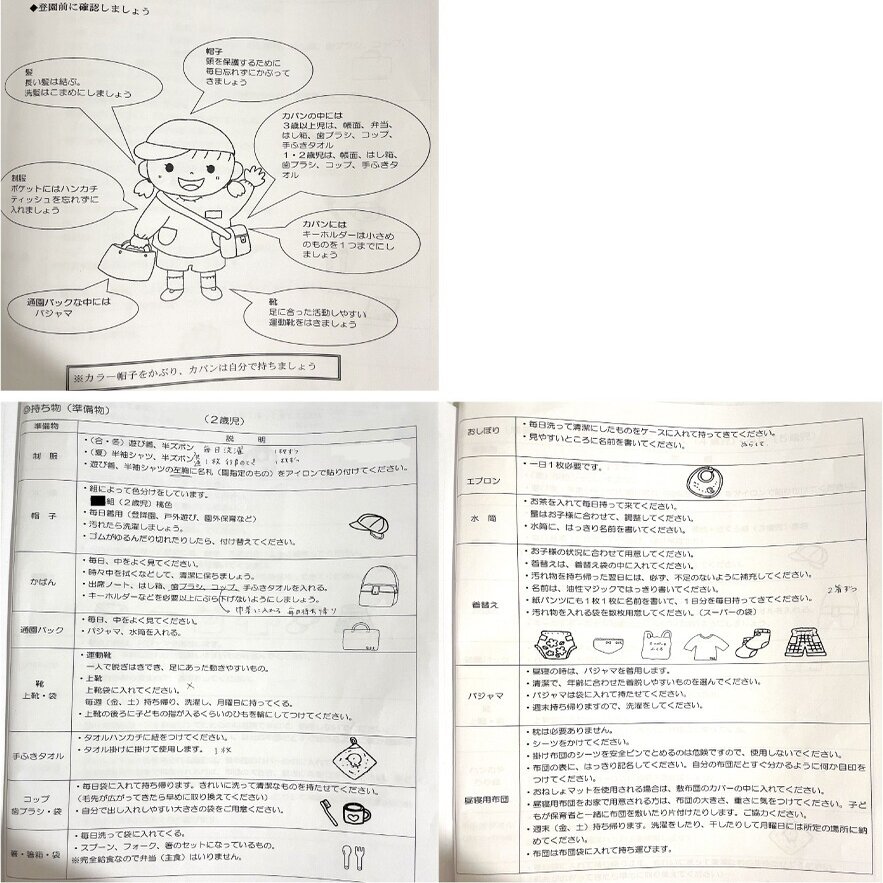 ◆登園前に確認しましょう
帽子
頭を保護するために
毎日忘れずにかぶって
きましょう
髪
長い髪は結ぶ。
洗髪はこまめにしましょう
カバンの中には
3歳以上児は、帳面、弁当、
はし箱、歯ブラシ、コップ、
手ふきタオル
1・2歳児は、帳面、はし箱、
歯ブラシ、コップ、手ふきタ
オル
制服
ポケットにはハンカチ
ティッシュを忘れずに
入れましょう
カバンには
キーホルダーは小さめ
のものを1つまでにし
ましょう
通園バックな中には
パジャマ
靴
足に合った活動しやすい
運動靴をはきましょう
※カラー帽子をかぶり、カバンは自分で持ちましょう
◎持ち物(準備物)
(2歳児)
準備物
説 明
制 服
・(合・冬)遊び着、半ズボン 毎日洗濯
・(夏)半袖シャツ、半ズボン
・遊び着、半袖シャツの左胸に名札(園指定のもの)をアイロンで貼り付けてください。
帽 子
・組によって色分けをしています。
組(2歳児)桃色
・毎日着用(登降園、戸外遊び、園外保育など)
・汚れたら洗濯しましょう。
・ゴムがゆるんだり切れたりしたら、付け替えてください。
かばん
・毎日、中をよく見てください。
・時々中を拭くなどして、清潔に保ちましょう。
・出席ノート、はし箱、歯ブラシ、コップ、手ふきタオルを入れる。
・キーホルダーなどを必要以上にぶら下げないようにしましょう。
巾着に入れる 毎日持ち帰り
通園バック
・毎日、中をよく見てください。
・パジャマ、水筒を入れる。
靴
上靴・袋
・運動靴
一人で脱ぎはきでき、足にあった動きやすいもの。
・上靴
上靴袋に入れてください。 ×
毎週(金、土)持ち帰り、洗濯し、月曜日に持ってくる。
・上靴の後ろに子どもの指が入るくらいのひもを輪にしてつけてください。
手ふきタオル
・タオルハンカチに紐をつけてください。
・タオル掛けに掛けて使用します。 1枚
コップ
歯ブラシ・袋
・毎日袋に入れて持ち帰ります。きれいに洗って清潔なものを持たせてください。
(毛先が広がってきたら早めに取り換えてください)
・自分で出し入れしやすい大きさの袋をご用意ください。
箸・箸箱・袋
・毎日洗って袋に入れてくる。
・スプーン、フォーク、箸のセットになっているもの。
※完全給食なので弁当(主食)はいりません。
おしぼり
・毎日洗って清潔にしたものをケースに入れて持ってきてください。
・見やすいところに名前を書いてください。 ぬらして
エプロン
・一日1枚必要です。
水 筒
・お茶を入れて毎日持って来てください。
量はお子様に合わせて、調整してください。
・水筒に、はっきり名前を書いてください。
着替え
・お子様の状況に合わせて用意してください。
・着替えは、着替え袋の中に入れてください。
・汚れ物を持ち帰った翌日には、必ず、不足のないように補充してください。
・名前は、油性マジックではっきり書いてください。 2着ずつ
・紙パンツにも1枚1枚に名前を書いて、1日分を毎日持ってきてください。
・汚れ物を入れる袋を数枚用意してください。(スーパーの袋)
パジャマ
・昼寝の時は、パジャマを着用します。
・清潔で、年齢に合わせた着脱しやすいものを選んでください。
・パジャマは袋に入れて持たせてください。
・週末持ち帰りますので、洗濯をしてください。
昼寝用布団
・枕は必要ありません。
・シーツをかけてください。
・掛け布団のシーツを安全ピンでとめるのは危険ですので、使用しないでください。
・布団の表に、はっきり記名してください。自分の布団だとすぐ分かるように何か目印を
つけてください。
・おねしょマットを使用される場合は、敷布団のカバーの中に入れてください。
・昼寝用布団をお家で用意される方は、布団の大きさ、重さに気をつけてください。子ど
もが保育者と一緒に布団を敷いたり片付けたりします。ご協力ください。
・週末(金、土)持ち帰ります。洗濯をしたり、干したりして月曜日には所定の場所に納
めてください。
・布団は布団袋に入れて持ち運びます。